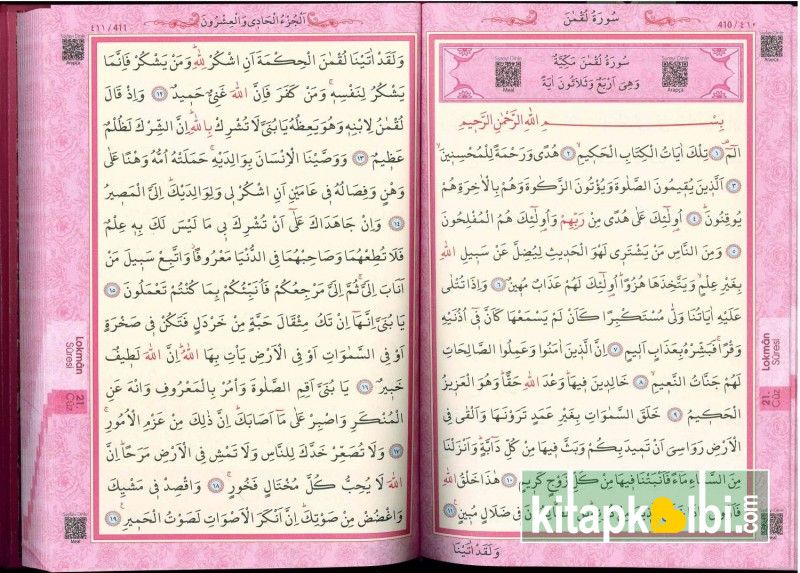 سُورَةُ لُقْمٰنَ
٤١٠ / 410
سُورَةُ لُقْمٰنَ مَكِّيَّةٌ
وَهِيَ اَرْبَعٌ وَثَلَاثُونَ اٰيَةً
Meal
Arapça
بِسْمِ اللهِ الرَّحْمٰنِ الرَّحِيمِ
الٓمٓ ﴿١﴾ تِلْكَ اٰيَاتُ الْكِتَابِ الْحَكِيمِ ﴿٢﴾ هُدًى وَرَحْمَةً لِلْمُحْسِنِينَ
﴿٣﴾ اَلَّذِينَ يُقِيمُونَ الصَّلٰوةَ وَيُؤْتُونَ الزَّكٰوةَ وَهُمْ بِالْاٰخِرَةِ هُمْ
يُوقِنُونَ ﴿٤﴾ اُولٰٓئِكَ عَلٰى هُدًى مِنْ رَبِّهِمْ وَاُولٰٓئِكَ هُمُ الْمُفْلِحُونَ
﴿٥﴾ وَمِنَ النَّاسِ مَنْ يَشْتَرِي لَهْوَ الْحَدِيثِ لِيُضِلَّ عَنْ سَبِيلِ اللهِ
بِغَيْرِ عِلْمٍ وَيَتَّخِذَهَا هُزُوًا اُولٰٓئِكَ لَهُمْ عَذَابٌ مُهِينٌ ﴿٦﴾ وَاِذَا تُتْلٰى
عَلَيْهِ اٰيَاتُنَا وَلّٰى مُسْتَكْبِرًا كَاَنْ لَمْ يَسْمَعْهَا كَاَنَّ فِي اُذُنَيْهِ
وَقْرًا فَبَشِّرْهُ بِعَذَابٍ اَلِيمٍ ﴿٧﴾ اِنَّ الَّذِينَ اٰمَنُوا وَعَمِلُوا الصَّالِحَاتِ
لَهُمْ جَنَّاتُ النَّعِيمِ ﴿٨﴾ خَالِدِينَ فِيهَا وَعْدَ اللهِ حَقًّا وَهُوَ الْعَزِيزُ
الْحَكِيمُ ﴿٩﴾ خَلَقَ السَّمٰوَاتِ بِغَيْرِ عَمَدٍ تَرَوْنَهَا وَاَلْقٰى فِي
الْاَرْضِ رَوَاسِيَ اَنْ تَمِيدَ بِكُمْ وَبَثَّ فِيهَا مِنْ كُلِّ دَٓابَّةٍ وَاَنْزَلْنَا
مِنَ السَّمَٓاءِ مَٓاءً فَاَنْبَتْنَا فِيهَا مِنْ كُلِّ زَوْجٍ كَرِيمٍ ﴿١٠﴾ هٰذَا خَلْقُ اللهِ
فِي ضَلَالٍ مُبِينٍ ﴿١١﴾
وَلَقَدْ اٰتَيْنَا
Lokmân Sûresi
21. Cüz
اَلْجُزْءُ الْحَادِي وَالْعِشْرُونَ
٤١١ / 411
وَلَقَدْ اٰتَيْنَا لُقْمٰنَ الْحِكْمَةَ اَنِ اشْكُرْ لِلّٰهِ وَمَنْ يَشْكُرْ فَاِنَّمَا
يَشْكُرُ لِنَفْسِهِ وَمَنْ كَفَرَ فَاِنَّ اللهَ غَنِيٌّ حَمِيدٌ ﴿١٢﴾ وَاِذْ قَالَ
لُقْمٰنُ لِابْنِهِ وَهُوَ يَعِظُهُ يَا بُنَيَّ لَا تُشْرِكْ بِاللهِ اِنَّ الشِّرْكَ لَظُلْمٌ
عَظِيمٌ ﴿١٣﴾ وَوَصَّيْنَا الْاِنْسَانَ بِوَالِدَيْهِ حَمَلَتْهُ اُمُّهُ وَهْنًا عَلٰى
وَهْنٍ وَفِصَالُهُ فِي عَامَيْنِ اَنِ اشْكُرْ لِي وَلِوَالِدَيْكَ اِلَيَّ الْمَصِيرُ
﴿١٤﴾ وَاِنْ جَاهَدَاكَ عَلٰٓى اَنْ تُشْرِكَ بِي مَا لَيْسَ لَكَ بِهِ عِلْمٌ
فَلَا تُطِعْهُمَا وَصَاحِبْهُمَا فِي الدُّنْيَا مَعْرُوفًا وَاتَّبِعْ سَبِيلَ مَنْ
اَنَابَ اِلَيَّ ثُمَّ اِلَيَّ مَرْجِعُكُمْ فَاُنَبِّئُكُمْ بِمَا كُنْتُمْ تَعْمَلُونَ ﴿١٥﴾
يَا بُنَيَّ اِنَّهَٓا اِنْ تَكُ مِثْقَالَ حَبَّةٍ مِنْ خَرْدَلٍ فَتَكُنْ فِي صَخْرَةٍ
اَوْ فِي السَّمٰوَاتِ اَوْ فِي الْاَرْضِ يَأْتِ بِهَا اللهُ اِنَّ اللهَ لَطِيفٌ
خَبِيرٌ ﴿١٦﴾ يَا بُنَيَّ اَقِمِ الصَّلٰوةَ وَأْمُرْ بِالْمَعْرُوفِ وَانْهَ عَنِ
الْمُنْكَرِ وَاصْبِرْ عَلٰى مَٓا اَصَابَكَ اِنَّ ذٰلِكَ مِنْ عَزْمِ الْاُمُورِ
﴿١٧﴾ وَلَا تُصَعِّرْ خَدَّكَ لِلنَّاسِ وَلَا تَمْشِ فِي الْاَرْضِ مَرَحًا اِنَّ
اللهَ لَا يُحِبُّ كُلَّ مُخْتَالٍ فَخُورٍ ﴿١٨﴾ وَاقْصِدْ فِي مَشْيِكَ
وَاغْضُضْ مِنْ صَوْتِكَ اِنَّ اَنْكَرَ الْاَصْوَاتِ لَصَوْتُ الْحَمِيرِ ﴿١٩﴾
Lokmân Sûresi
21. Cüz
kitapkalbi.com